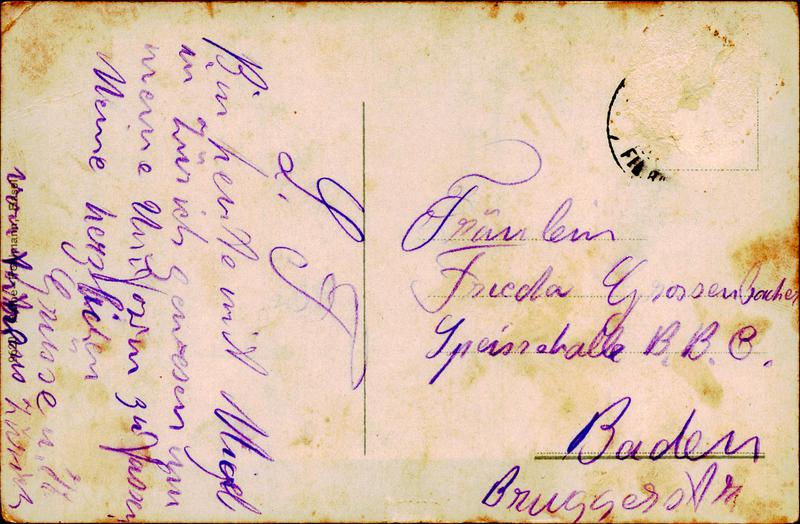 L. F.
Bin heute mit Migel
in Zürich gewesen um
meine Uniform zu fassen
Meine herzlichen
Grüsse u.
Zürich
Fräulein
Frieda Grossenbacher
Speissehalle B. B. C.
Baden
Bruggerstr